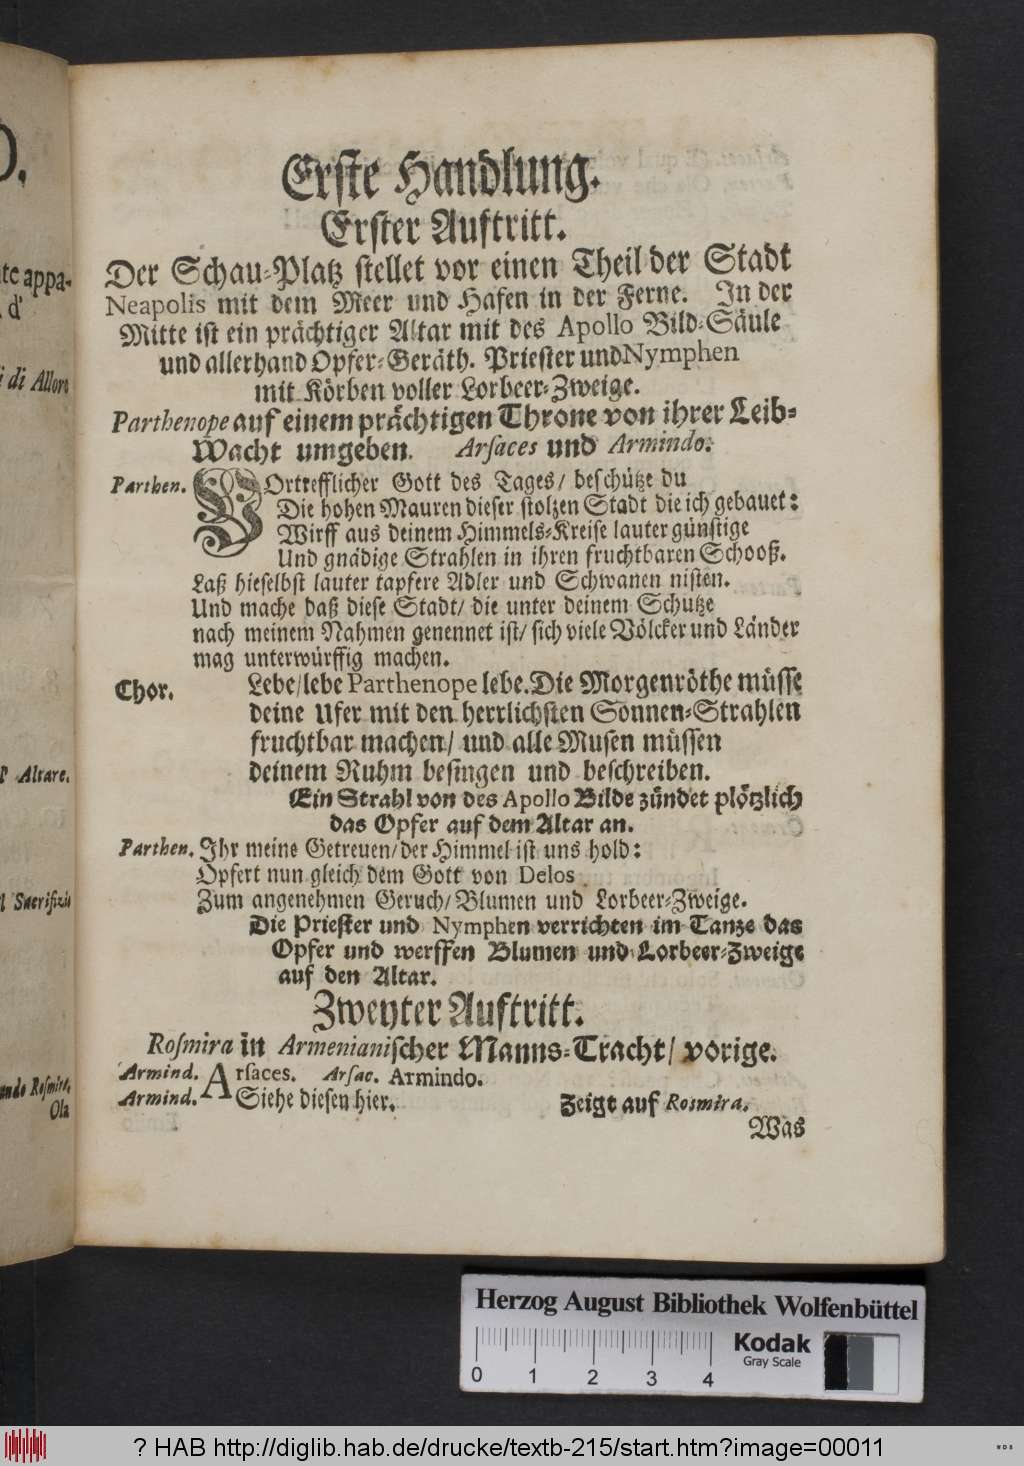 O.
te appa-
d'
i di Allori
l' Altare.
l Sacrifizio
ando Rosmira.
Ola
Erste Handlung.
Erster Auftritt.
Der Schau-Platz stellet vor einen Theil der Stadt
Neapolis mit dem Meer und Hafen in der Ferne. In der
Mitte ist ein prächtiger Altar mit des Apollo Bild-Säule
und allerhand Opfer-Geräth. Priester und Nymphen
mit Körben voller Lorbeer-Zweige.
Parthenope auf einem prächtigen Throne von ihrer Leib-
Wacht umgeben. Arsaces und Armindo.
Parthen. VOrtrefflicher Gott des Tages/ beschütze du
Die hohen Mauren dieser stolzen Stadt die ich gebauet:
Wirff aus deinem Himmels-Kreise lauter günstige
Und gnädige Strahlen in ihren fruchtbaren Schooß.
Laß hieselbst lauter tapfere Adler und Schwanen nisten.
Und mache daß diese Stadt/ die unter deinem Schutze
nach meinem Nahmen genennet ist/ sich viele Völcker und Länder
mag unterwürffig machen.
Chor. Lebe/ lebe Parthenope lebe. Die Morgenröthe müsse
deine Ufer mit den herrlichsten Sonnen-Strahlen
fruchtbar machen/ und alle Musen müssen
deinem Ruhm besingen und beschreiben.
Ein Strahl von des Apollo Bilde zündet plötzlich
das Opfer auf dem Altar an.
Parthen. Ihr meine Getreuen/ der Himmel ist uns hold:
Opfert nun gleich dem Gott von Delos
Zum angenehmen Geruch/ Blumen und Lorbeer-Zweige.
Die Priester und Nymphen verrichten im Tanze das
Opfer und werffen Blumen und Lorbeer-Zweige
auf den Altar.
Zweyter Auftritt.
Rosmira in Armenianischer Manns-Tracht/ vorige.
Armind. Arsaces. Arsac. Armindo.
Armind. Siehe diesen hier. Zeigt auf Rosmira.
Was
Herzog August Bibliothek Wolfenbüttel
Kodak
Gray Scale
0 1 2 3 4
? HAB http://diglib.hab.de/drucke/textb-215/start.htm?image=00011